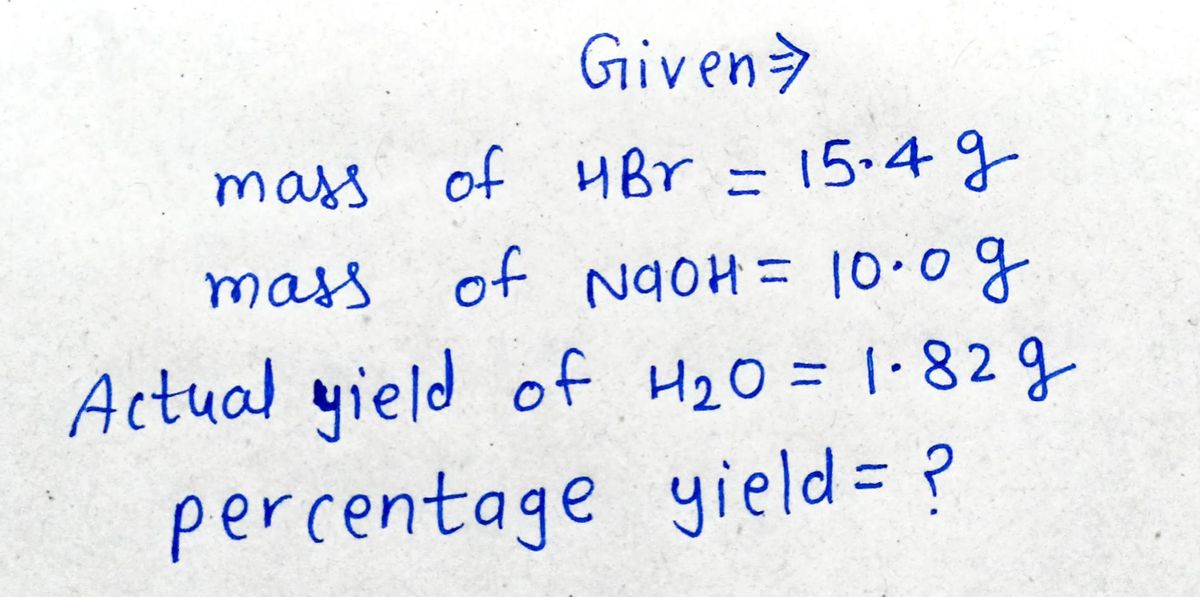 Given⇒
mass of HBr = 15.4 g
mass of NaOH = 10.0 g
Actual yield of H₂O = 1.82 g
percentage yield = ?